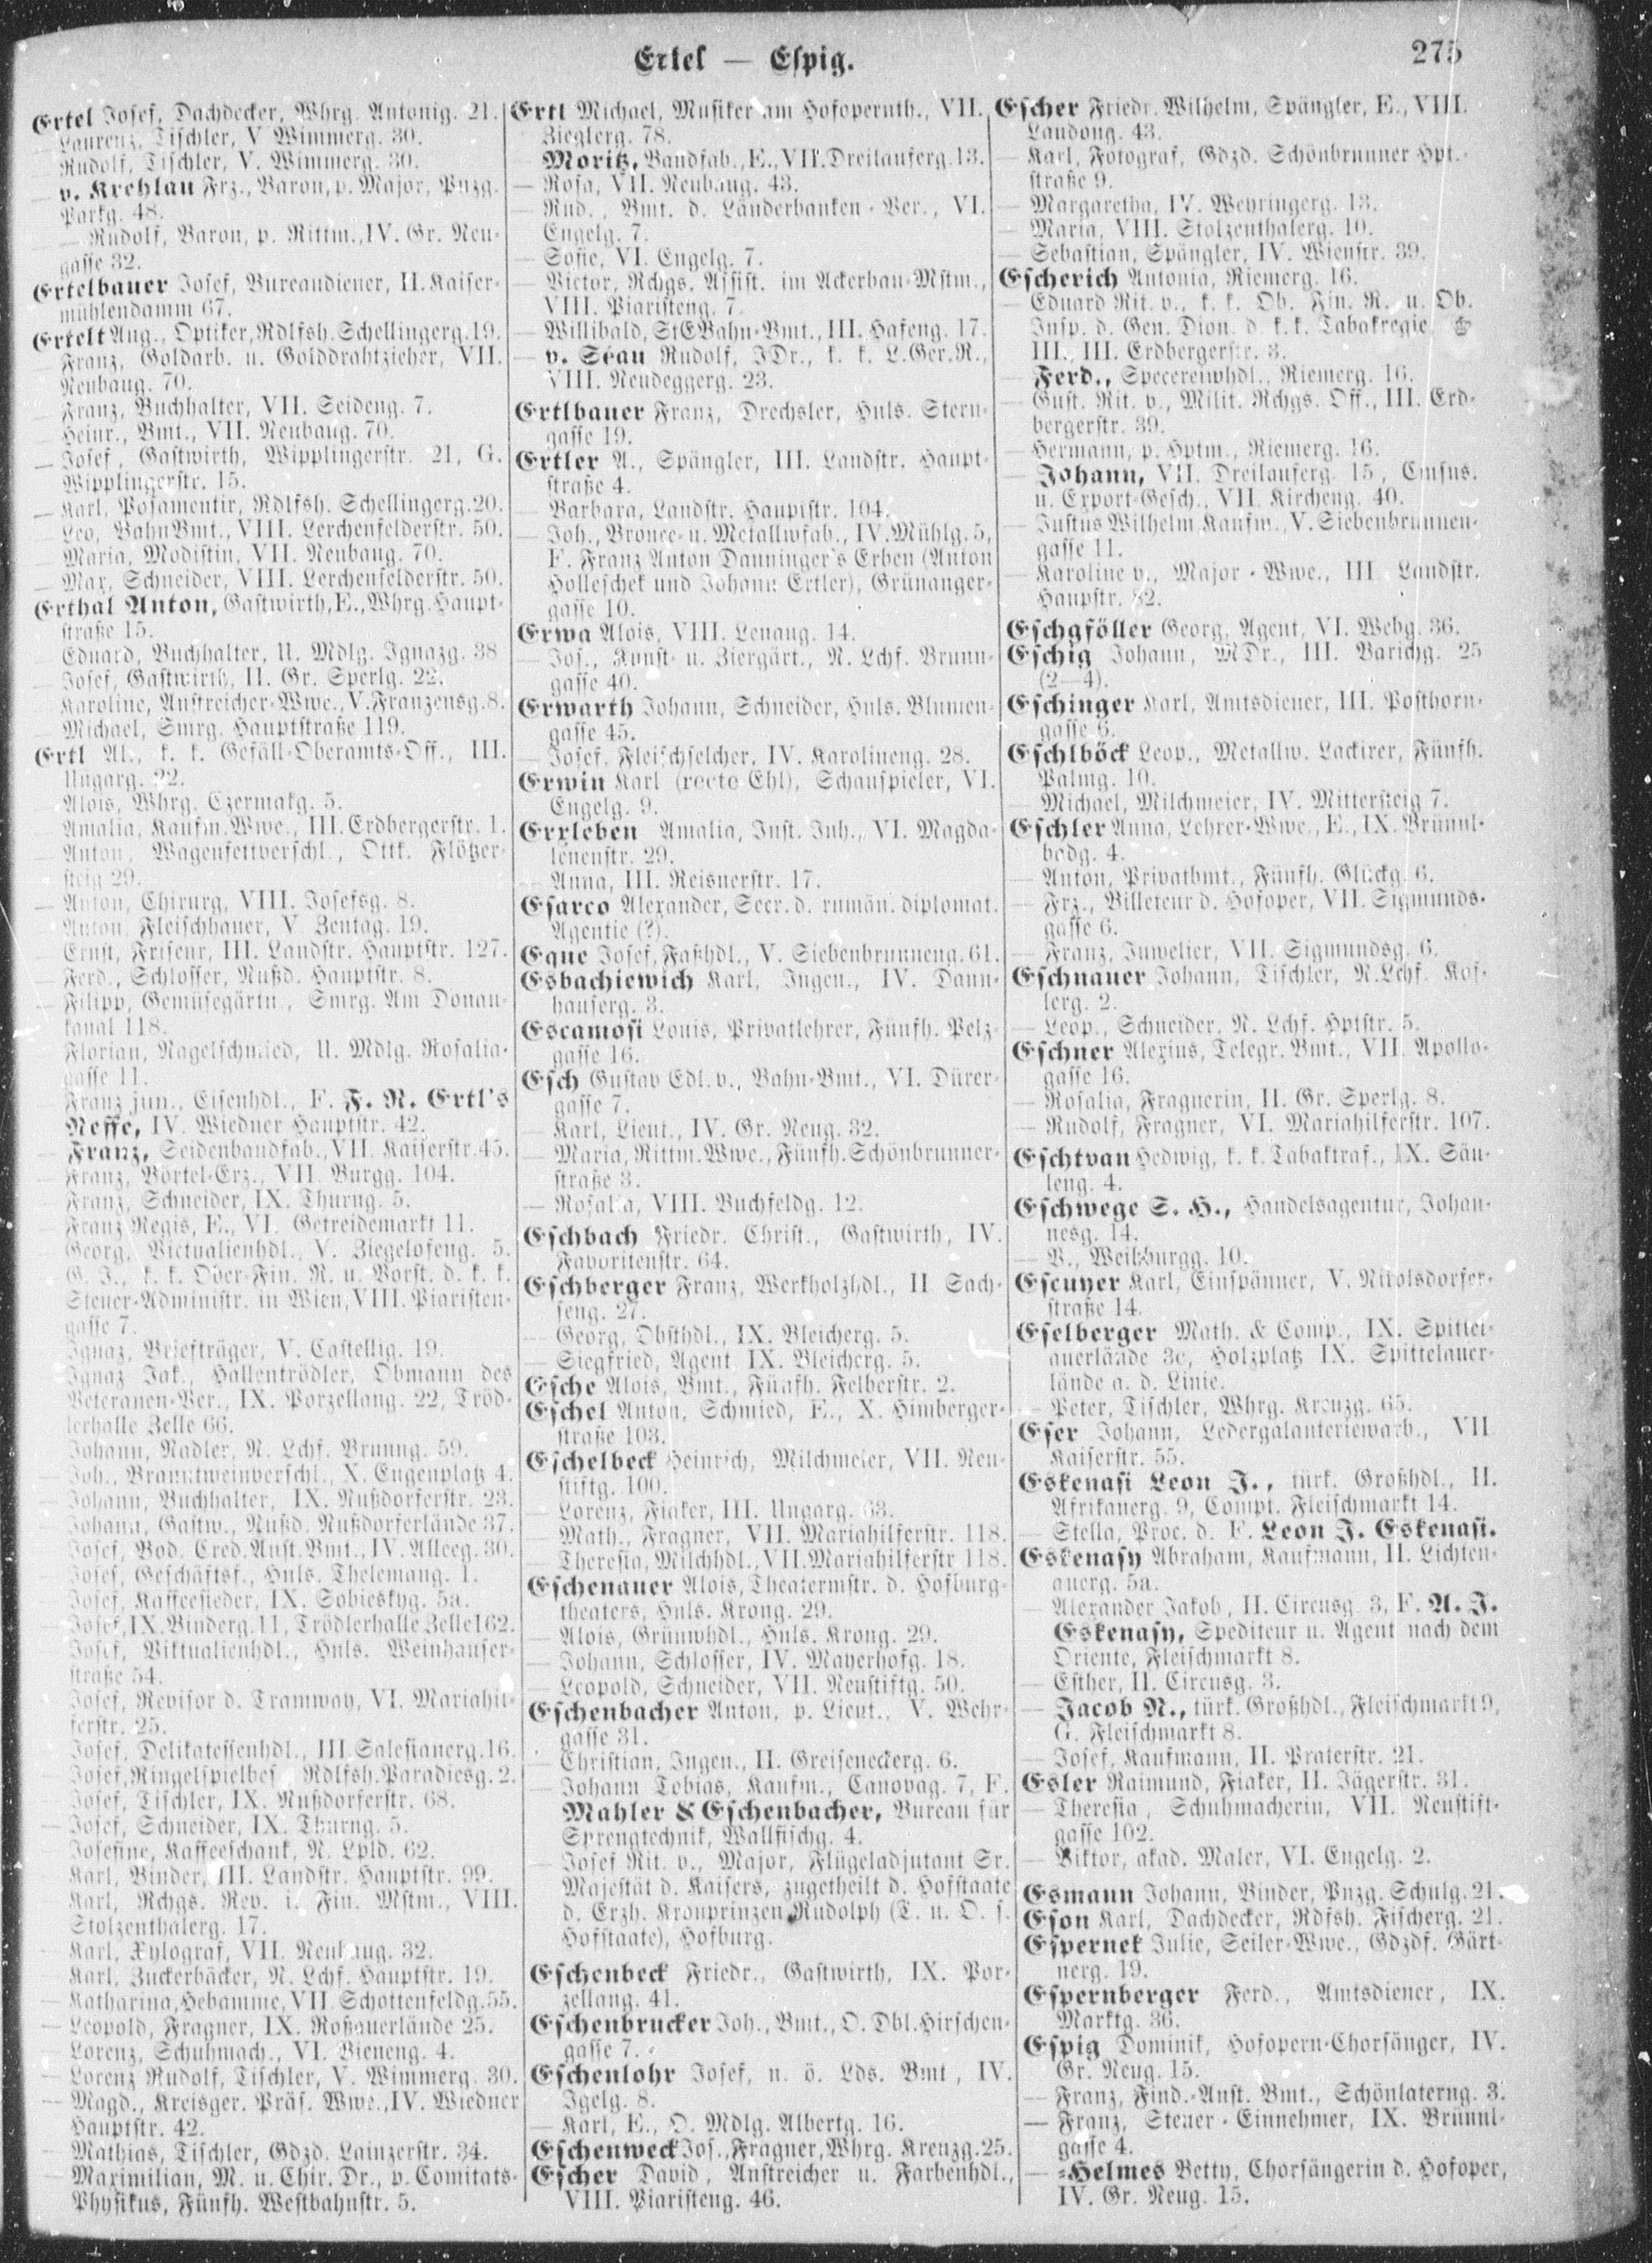 Ertel — Eſpig.
275
Ertel Joſef, Dachdecker, Whrg. Antonig. 21.
— Laurenz, Tiſchler, V Wimmerg. 30.
— Rudolf, Tiſchler, V. Wimmerg. 30.
— v. Krehlau Frz., Baron, p. Major, Pnzg.
Parkg. 48.
— — Rudolf, Baron, p. Rittm., IV. Gr. Neu-
gaſſe 32.
Ertelbauer Joſef, Bureaudiener, II. Kaiſer-
mühlendamm 67.
Ertelt Aug., Optiker, Rdlfsh. Schellingerg. 19.
— Franz, Goldarb. u. Golddrahtzieher, VII.
Neubaug. 70.
— Franz, Buchhalter, VII. Seideng. 7.
— Heinr., Bmt., VII. Neubaug. 70.
— Joſef, Gaſtwirth, Wipplingerſtr. 21, G.
Wipplingerſtr. 15.
— Karl, Poſamentir, Rdlfsh. Schellingerg. 20.
— Leo, BahnBmt., VIII. Lerchenfelderſtr. 50.
— Maria, Modiſtin, VII. Neubaug. 70.
— Max, Schneider, VIII. Lerchenfelderſtr. 50.
Erthal Anton, Gaſtwirth, E., Whrg. Haupt-
ſtraße 15.
— Eduard, Buchhalter, U. Mdlg. Ignazg. 38
— Joſef, Gaſtwirth, II. Gr. Sperlg. 22.
— Karoline, Anſtreicher-Wwe., V. Franzensg. 8.
— Michael, Smrg. Hauptſtraße 119.
Ertl Al., k. k. Gefäll-Oberamts-Off., III.
Ungarg. 22.
— Alois, Whrg. Czermakg. 5.
— Amalia, Kaufm. Wwe., III. Erdbergerſtr. 1.
— Anton, Wagenfettverſchl., Ottk. Flötzer-
ſteig 29.
— Anton, Chirurg, VIII. Joſefsg. 8.
— Anton, Fleiſchhauer, V Zentag. 19.
— Ernſt, Friſeur, III. Landſtr. Hauptſtr. 127.
— Ferd., Schloſſer, Nußd. Hauptſtr. 8.
— Filipp, Gemüſegärtn., Smrg. Am Donau-
kanal 118.
— Florian, Nagelſchmied, U. Mdlg. Roſalia-
gaſſe 11.
— Franz jun., Eiſenhdl., F. F. N. Ertl's
Neffe, IV. Wiedner Hauptſtr. 42.
— Franz, Seidenbandfab., VII. Kaiſerſtr. 45.
— Franz, Börtel-Erz., VII. Burgg. 104.
— Franz, Schneider, IX. Thurng. 5.
— Franz Regis, E., VI. Getreidemarkt 11.
— Georg, Victualienhdl., V. Ziegelofeng. 5.
— G. J., k. k. Ober-Fin. R. u. Vorſt. d. k. k.
Steuer-Adminiſtr. in Wien, VIII. Piariſten-
gaſſe 7.
— Ignaz, Briefträger, V. Caſtellig. 19.
— Ignaz Jak., Hallentrödler, Obmann des
Veteranen-Ver., IX. Porzellang. 22, Tröd-
lerhalle Zelle 66.
— Johann, Nadler, N. Lchf. Brunng. 59.
— Joh., Branntweinverſchl., X. Eugenplatz 4.
— Johann, Buchhalter, IX. Nußdorferſtr. 23.
— Johann, Gaſtw., Nußd. Nußdorferlände 37.
— Joſef, Bod. Cred. Anſt. Bmt., IV. Alleeg. 30.
— Joſef, Geſchäftsf., Hnls. Thelemang. 1.
— Joſef, Kaffeeſieder, IX. Sobieskyg. 5a.
— Joſef, IX. Binderg. 11, Trödlerhalle Zelle 162.
— Joſef, Viktualienhdl., Hnls. Weinhauſer-
ſtraße 54.
— Joſef, Reviſor d. Tramway, VI. Mariahil-
ferſtr. 25.
— Joſef, Delikateſſenhdl., III. Saleſianerg. 16.
— Joſef, Ringelſpielbeſ., Rdlfsh. Paradiesg. 2.
— Joſef, Tiſchler, IX. Nußdorferſtr. 68.
— Joſef, Schneider, IX. Thurng. 5.
— Joſefine, Kaffeeſchank, N. Lpld. 62.
— Karl, Binder, III. Landſtr. Hauptſtr. 99.
— Karl, Rchgs. Rev. i. Fin. Mſtm., VIII.
Stolzenthalerg. 17.
— Karl, Xylograf, VII. Neubaug. 32.
— Karl, Zuckerbäcker, N. Lchf. Hauptſtr. 19.
— Katharina, Hebamme, VII. Schottenfeldg. 55.
— Leopold, Fragner, IX. Roßauerlände 25.
— Lorenz, Schuhmach., VI. Bieneng. 4.
— Lorenz Rudolf, Tiſchler, V. Wimmerg. 30.
— Magd., Kreisger. Präſ. Wwe., IV. Wiedner
Hauptſtr. 42.
— Mathias, Tiſchler, Gdzd. Lainzerſtr. 34.
— Maximilian, M. u. Chir. Dr., p. Comitats-
Phyſikus, Fünfh. Weſtbahnſtr. 5.
Ertl Michael, Muſiker am Hofopernth., VII.
Zieglerg. 78.
— Moritz, Bandfab., E., VII. Dreilauferg. 13.
— Roſa, VII. Neubaug. 43.
— Rud., Bmt. d. Länderbanken-Ver., VI.
Engelg. 7.
— Sofie, VI. Engelg. 7.
— Victor, Rchgs. Aſſiſt. im Ackerbau-Mſtm.,
VIII. Piariſteng. 7.
— Willibald, StEBahn-Bmt., III. Hafeng. 17.
— v. Seau Rudolf, JDr., k. k. L.Ger.R.,
VIII. Neudeggerg. 23.
Ertlbauer Franz, Drechsler, Hnls. Stern-
gaſſe 19.
Ertler A., Spängler, III. Landſtr. Haupt-
ſtraße 4.
— Barbara, Landſtr. Hauptſtr. 104.
— Joh., Bronce- u. Metallwfab., IV. Mühlg. 5,
F. Franz Anton Danninger's Erben (Anton
Holleſchek und Johann Ertler), Grünanger-
gaſſe 10.
Erwa Alois, VIII. Lenaug. 14.
— Joſ., Kunſt- u. Ziergärt., N. Lchf. Brunn-
gaſſe 40.
Erwarth Johann, Schneider, Hnls. Blumen-
gaſſe 45.
— Joſef, Fleiſchſelcher, IV. Karolineng. 28.
Erwin Karl (recte Ehl), Schauſpieler, VI.
Engelg. 9.
Erxleben Amalia, Inſt. Inh., VI. Magda-
lenenſtr. 29.
— Anna, III. Reisnerſtr. 17.
Eſarco Alexander, Secr. d. rumän. diplomat.
Agentie (?).
Eque Joſef, Faßhdl., V. Siebenbrunneng. 61.
Esbachiewich Karl, Ingen., IV. Dann-
hauſerg. 3.
Escamoſi Louis, Privatlehrer, Fünfh. Pelz-
gaſſe 16.
Eſch Guſtav Edl. v., Bahn-Bmt., VI. Dürer-
gaſſe 7.
— Karl, Lieut., IV. Gr. Neug. 32.
— Maria, Rittm. Wwe., Fünfh. Schönbrunner-
ſtraße 3.
— Roſalia, VIII. Buchfeldg. 12.
Eſchbach Friedr. Chriſt., Gaſtwirth, IV.
Favoritenſtr. 64.
Eſchberger Franz, Werkholzhdl., II Sach-
ſeng. 27.
— Georg, Obſthdl., IX. Bleicherg. 5.
— Siegfried, Agent IX. Bleicherg. 5.
Eſche Alois, Bmt., Fünfh. Felberſtr. 2.
Eſchel Anton, Schmied, E., X. Himberger-
ſtraße 103.
Eſchelbeck Heinrich, Milchmeier, VII. Neu-
ſtiftg. 100.
— Lorenz, Fiaker, III. Ungarg. 63.
— Math., Fragner, VII. Mariahilferſtr. 118.
— Thereſia, Milchhdl., VII. Mariahilferſtr 118.
Eſchenauer Alois, Theatermſtr. d. Hofburg-
theaters, Hnls. Krong. 29.
— Alois, Grünwhdl., Hnls. Krong. 29.
— Johann, Schloſſer, IV. Mayerhofg. 18.
— Leopold, Schneider, VII. Neuſtiftg. 50.
Eſchenbacher Anton, p. Lieut., V. Wehr-
gaſſe 31.
— Chriſtian, Ingen., II. Greiſeneckerg. 6.
— Johann Tobias, Kaufm., Canovag. 7, F.
Mahler & Eſchenbacher, Bureau für
Sprengtechnik, Wallfiſchg. 4.
— Joſef Rit. v., Major, Flügeladjutant Sr.
Majeſtät d. Kaiſers, zugetheilt d. Hofſtaate
d. Erzh. Kronprinzen Rudolph (T. u. O. ſ.
Hofſtaate), Hofburg.
Eſchenbeck Friedr., Gaſtwirth, IX. Por-
zellang. 41.
Eſchenbrucker Joh., Bmt., O. Dbl. Hirſchen-
gaſſe 7.
Eſchenlohr Joſef, n. ö. Lds. Bmt, IV.
Igelg. 8.
— Karl, E., O. Mdlg. Albertg. 16.
Eſchenweck Joſ., Fragner, Whrg. Kreuzg. 25.
Eſcher David, Anſtreicher u. Farbenhdl.,
VIII. Piariſteng. 46.
Eſcher Friedr. Wilhelm, Spängler, E., VIII.
Laudong. 43.
— Karl, Fotograf, Gdzd. Schönbrunner Hpt.-
ſtraße 9.
— Margaretha, IV. Weyringerg. 13.
— Maria, VIII. Stolzenthalerg. 10.
— Sebaſtian, Spängler, IV. Wienſtr. 39.
Eſcherich Antonia, Riemerg. 16.
— Eduard Rit. v., k. k. Ob. Fin. R. u. Ob.
Inſp. d. Gen. Dion. d. k. k. Tabakregie
III., III. Erdbergerſtr. 3.
— Ferd., Specereiwhdl., Riemerg. 16.
— Guſt. Rit. v., Milit. Rchgs. Off., III. Erd-
bergerſtr. 39.
— Hermann, p. Hptm., Riemerg. 16.
— Johann, VII. Dreilauferg. 15, Cmſns.
u. Export-Geſch., VII. Kircheng. 40.
— Juſtus Wilhelm Kaufm., V. Siebenbrunnen-
gaſſe 11.
— Karoline v., Major-Wwe., III. Landſtr.
Haupſtr. 82.
Eſchgföller Georg, Agent, VI. Webg. 36.
Eſchig Johann, MDr., III. Barichg. 25
(2—4).
Eſchinger Karl, Amtsdiener, III. Poſthorn-
gaſſe 6.
Eſchlböck Leop., Metallw. Lackirer, Fünfh.
Palmg. 10.
— Michael, Milchmeier, IV. Mitterſteig 7.
Eſchler Anna, Lehrer-Wwe., E., IX. Brünnl-
badg. 4.
— Anton, Privatbmt., Fünfh. Glückg. 6.
— Frz., Billeteur d. Hofoper, VII. Sigmunds-
gaſſe 6.
— Franz, Juwelier, VII. Sigmundsg. 6.
Eſchnauer Johann, Tiſchler, N. Lchf. Kof-
lerg. 2.
— Leop., Schneider, N. Lchf. Hptſtr. 5.
Eſchner Alexius, Telegr. Bmt., VII. Apollo-
gaſſe 16.
— Roſalia, Fragnerin, II. Gr. Sperlg. 8.
— Rudolf, Fragner, VI. Mariahilferſtr. 107.
Eſchtvan Hedwig, k. k. Tabaktraf., IX. Säu-
leng. 4.
Eſchwege S. H., Handelsagentur, Johan-
nesg. 14.
— V., Weihburgg. 10.
Eſcuyer Karl, Einſpänner, V. Nikolsdorfer-
ſtraße 14.
Eſelberger Math. & Comp., IX. Spittel-
auerlände 3c, Holzplatz IX. Spittelauer-
lände a. d. Linie.
— Peter, Tiſchler, Whrg. Kreuzg. 65.
Eſer Johann, Ledergalanteriewarb., VII
Kaiſerſtr. 55.
Eskenaſi Leon J., türk. Großhdl., II.
Afrikanerg. 9, Compt. Fleiſchmarkt 14.
— Stella, Proc. d. F. Leon J. Eskenaſi.
Eskenaſy Abraham, Kaufmann, II. Lichten-
auerg. 5a.
— Alexander Jakob, II. Circusg. 3, F. A. J.
Eskenaſy, Spediteur u. Agent nach dem
Oriente, Fleiſchmarkt 8.
— Eſther, II. Circusg. 3.
— Jacob N., türk. Großhdl., Fleiſchmarkt 9,
G. Fleiſchmarkt 8.
— Joſef, Kaufmann, II. Praterſtr. 21.
Esler Raimund, Fiaker, II. Jägerſtr. 31.
— Thereſia, Schuhmacherin, VII. Neuſtift-
gaſſe 102.
— Viktor, akad. Maler, VI. Engelg. 2.
Esmann Johann, Binder, Pnzg. Schulg. 21.
Eſon Karl, Dachdecker, Rdfsh. Fiſcherg. 21.
Eſpernek Julie, Seiler-Wwe., Gdzdf. Gärt-
nerg. 19.
Eſpernberger Ferd., Amtsdiener, IX.
Marktg. 36.
Eſpig Dominik, Hofopern-Chorſänger, IV.
Gr. Neug. 15.
— Franz, Find.-Anſt. Bmt., Schönlaterng. 3.
— Franz, Steuer-Einnehmer, IX. Brünnl-
gaſſe 4.
— -Helmes Betty, Chorſängerin d. Hofoper,
IV. Gr. Neug. 15.